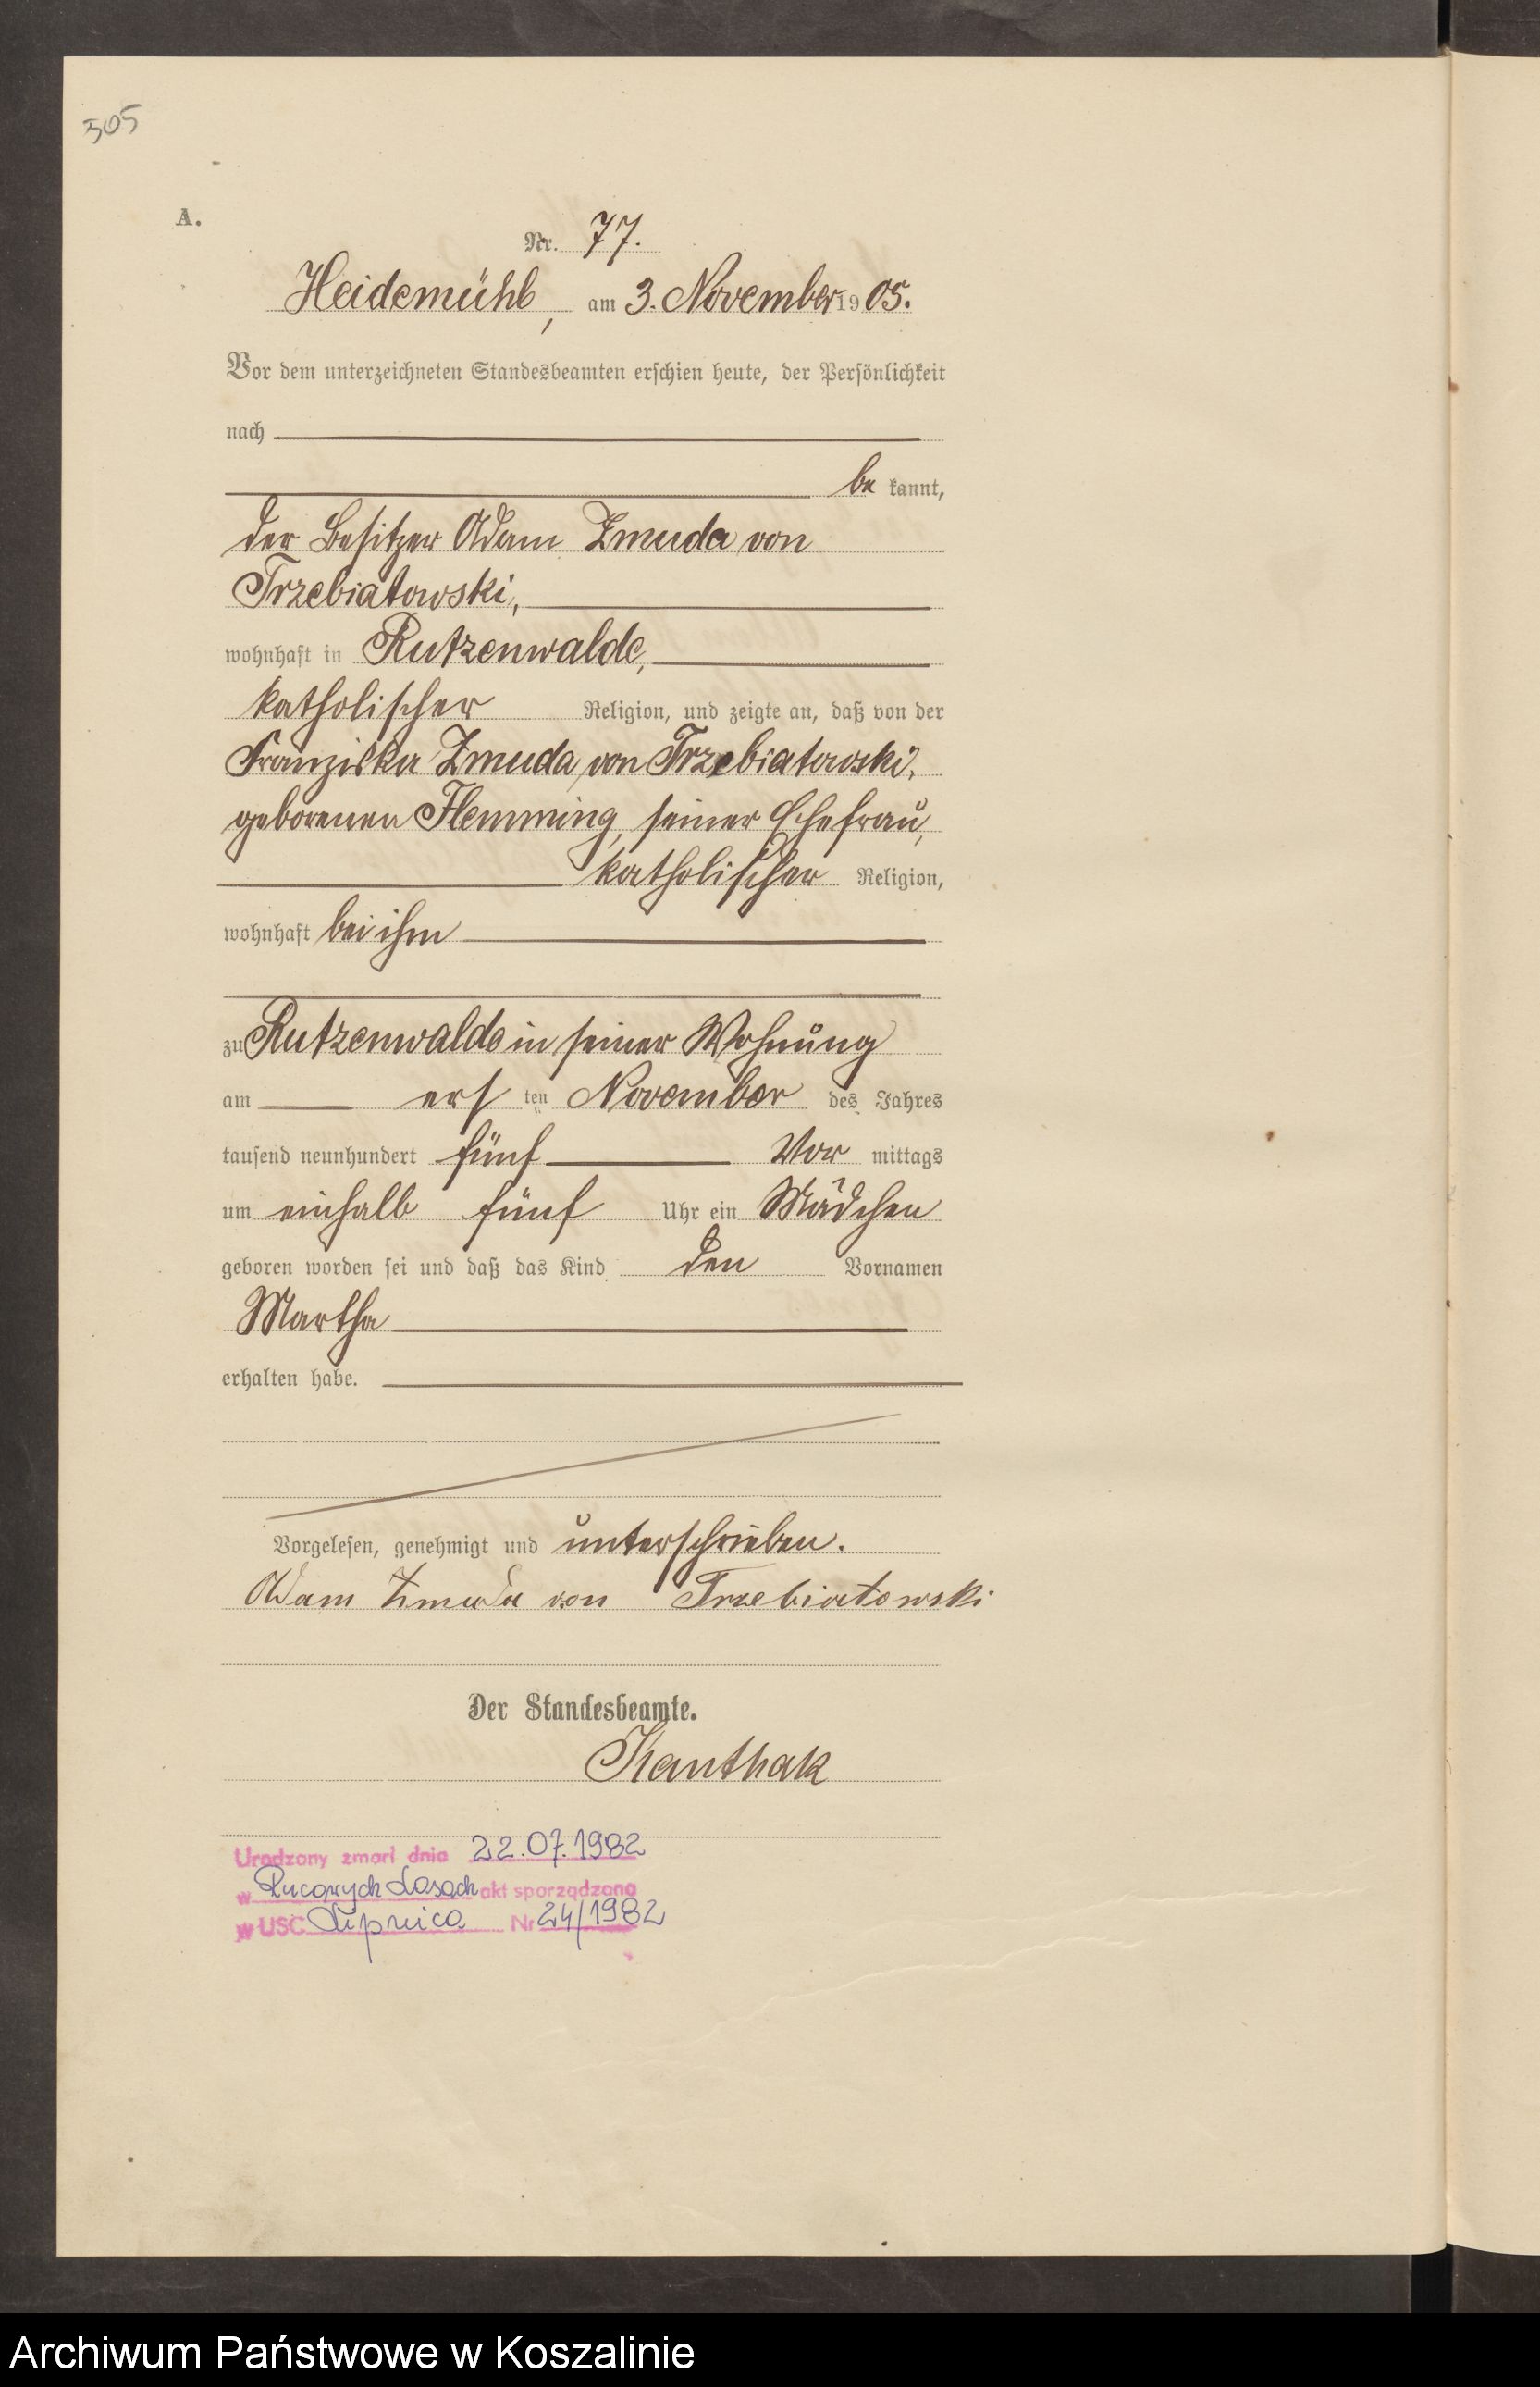 505
A.
Nr. 77.
Heidemühl, am 3. November 1905.
Vor dem unterzeichneten Standesbeamten erschien heute, der Persönlichkeit
nach
be kannt,
der Besitzer Adam Zmuda von
Trzebiatowski,
wohnhaft in Rutzenwalde,
katholischer Religion, und zeigte an, daß von der
Franziska Zmuda von Trzebiatowski,
geborenen Flemming, seiner Ehefrau,
katholischer Religion,
wohnhaft bei ihm
zu Rutzenwalde in seiner Wohnung
am ersten November des Jahres
tausend neunhundert fünf Vor mittags
um einhalb fünf Uhr ein Mädchen
geboren worden sei und daß das Kind den Vornamen
Martha
erhalten habe.
Vorgelesen, genehmigt und unterschrieben.
Adam Zmuda von Trzebiatowski
Der Standesbeamte.
Kanthak
Urodzony zmarł dnia 22.07.1982
w Rucowych Lasach akt sporządzono
w USC Lipnica Nr 24/1982
Archiwum Państwowe w Koszalinie